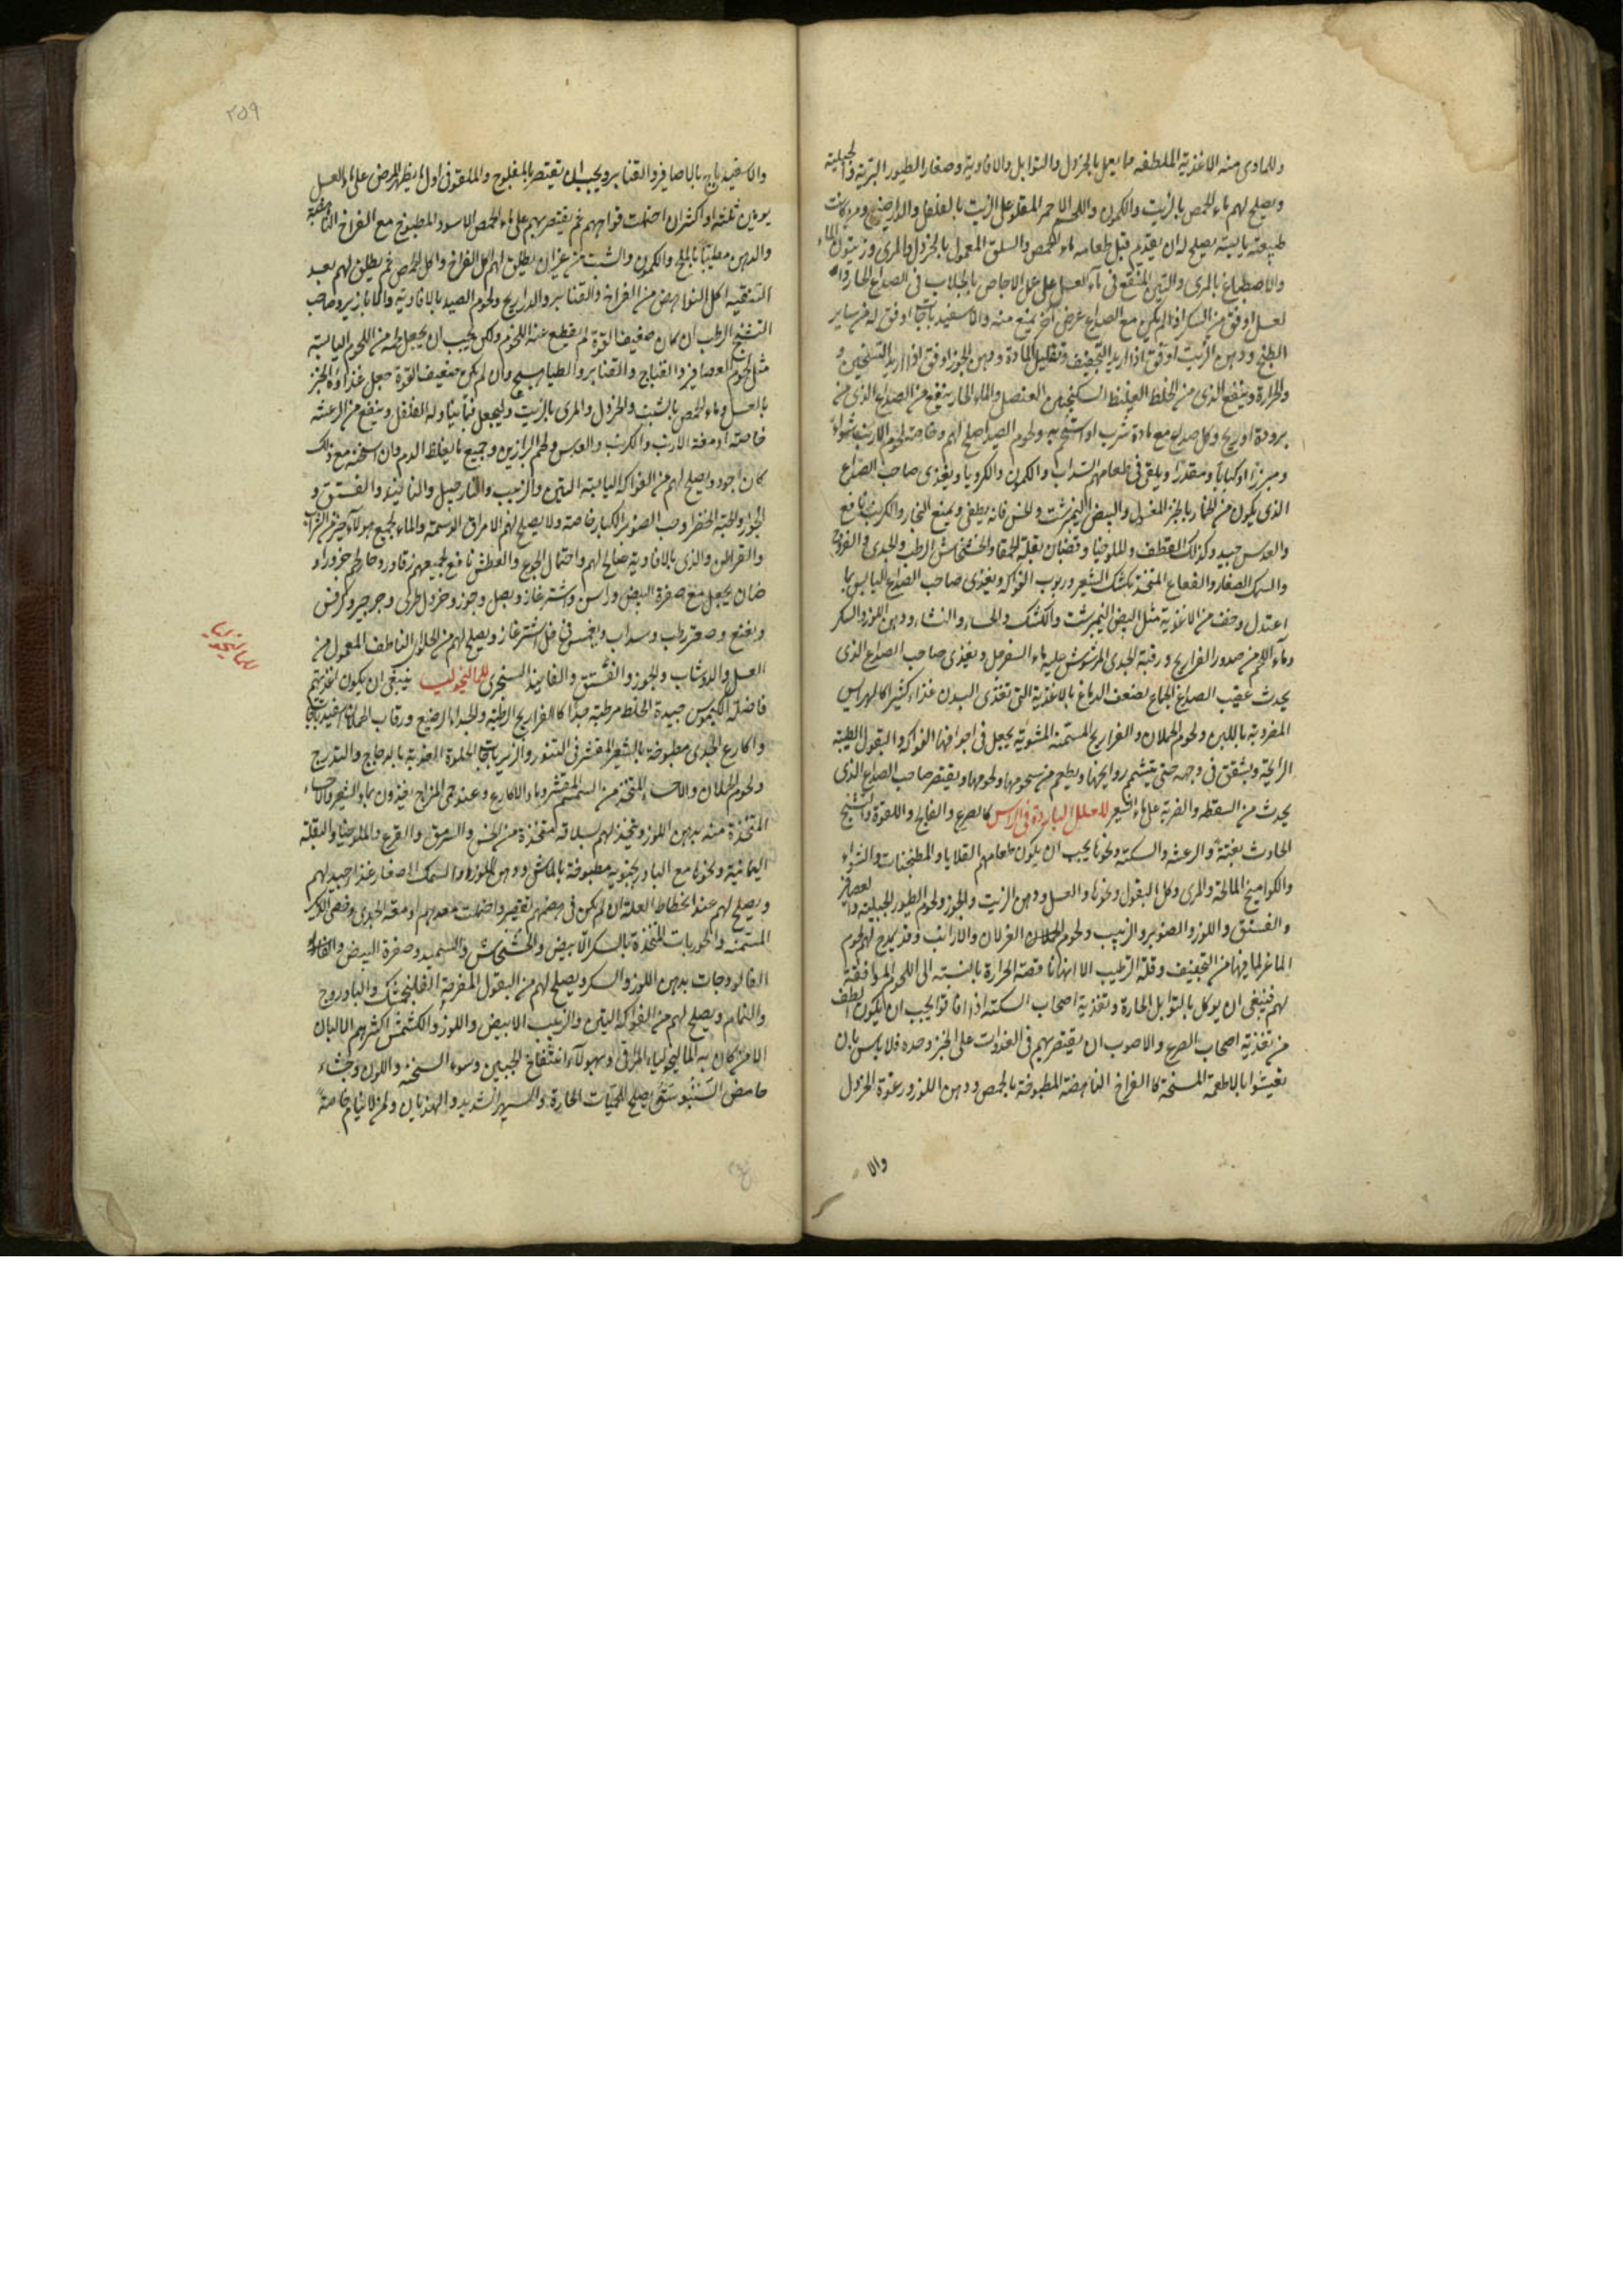 وللمادى منه الاغذية الملطفه ما يعمل بالخردل والتوابل والافاويه وصغار الطيور البرية والجبلية
ويصلح لهم ماء الحمص بالزيت والكمون واللحم الاحمر المقلو على الزيت بالفلفل والدارصينى ومن كانت
طبيعته يابسة يصلح له ان يقدم قبل طعامه ماء الحمص والسلق المعمول بالخردل والمرى وزيتون الماء
والاصطباغ بالمرى والتين المنقع فى ماء العسل على الاجاص بالجلاب فى الصداع الحار
لعسل اوفق من السكر اذا لم يكن مع الصداع عرض آخر يمنع منه والاسفيدباجات اوفق له من ساير
الطبخ ودهن الزيت اوفق اذا اريد التجفيف وتقليل المادة ودهن الجوز اوفق اذا اريد التسخين و
والحرارة وينفع الذى من الخلط الغليظ السكنجبين العنصل والماء الحار ينفع من الصداع الذى من
برودة او ريح وكل صداع مع مادة ولحوم الصيد اصلح لهم وخاصة لحوم الارنب شواء
ومبزرا او كبابا ويلقى فى طعامهم السداب والكمون والكرويا ويغذى صاحب الصداع
الذى يكون من الخمار بالخبز المغسول والبيض النيمبرشت والخس فانه يطفى ويمنع البخار والكرنب نافع
والعدس جيد وكذلك القطف والملوخيا وقضبان بقلة الحمقا والخشخاش الرطب والجدى والفروج
والسمك الصغار والفقاع المتخذ بكشك الشعير وربوب الفواكه ويغذى صاحب الصداع اليابس بما
اعتدل وخف من الاغذية مثل البيض النيمبرشت والكشك والحساء والنشاء ودهن اللوز والسكر
وماء اللحم من صدور الفراريج ورقبة الجدى المرشوش عليه ماء السفرجل ويغذى صاحب الصداع الذى
يحدث عقيب الجماع بضعف الدماغ بالاغذية التى تغذى البدن غذاء كثيرا كالهرايس
المضروبة باللبن ولحوم الحملان والفراريج المسمنة المشوية يجعل فى اجوافها الفواكه والبقول الطيبة
الرايحة ويشقق فى وجهه حتى يتشمم روايحها ويطعم من شحومها ولحومها ويقتصر صاحب الصداع الذى
يحدث من السقطه والضربة على ماء الشعير للعلل الباردة فى الراس كالصرع والفالج واللقوة والتشنج
الحادث بغتة والرعشه والسكتة ونحوها يجب ان يكون طعامهم القلايا والمطجنات والشواء
والكواميخ المالحة والمرى وكل البقول ونحوها والعسل ودهن الزيت والجوز ولحوم الطيور الجبلية والعصافير
والفستق واللوز والصنوبر والزبيب ولحوم الغزلان والارانب وقد يمدح لهم لحوم
الماعز لما فيها من التجفيف وقلة الترطيب الا انها ناقصة الحرارة بالنسبة الى اللحوم الموافقة
لهم فينبغى ان يوكل بالتوابل الحارة وتغذية اصحاب السكته اذا افاقوا يجب ان يكون الطف
من تغذية اصحاب الصرع والاصوب ان يقتصر بهم فى الغدوات على الخبز وحده فلا باس بان
يغيثوا بالاطعمة المسخنة كالفراخ الناهضة المطبوخة بالحمص ودهن اللوز ورغوة الخردل
والا
٢٥٩
والاسفيدباج بالعصافير والقنابر ويجب ان يقتصر بالمفلوج والملقو فى اول ما يظهر المرض على ماء العسل
يومين ثلثة او اكثر ان احتملت قواهم ثم يقتصر بهم على ماء الحمص الاسود المطبوخ مع الفراخ الناهضة
والدهن مطيبا بالملح والكمون والشبت من غير ان يطلق لهم اكل الفراخ واكل الحمص ثم يطلق لهم بعد
التنقيه اكل النواهض من الفراخ والقنابر والدراريج ولحوم الصيد بالافاويه والابازير وصاحب
التشنج الرطب ان كان ضعيف القوة لم يقطع عنه اللحوم ولكن يجب ان يجعل لحمه من اللحوم اليابسة
مثل لحوم العصافير والقباج والقنابر والطياهيج وان لم يكن ضعيف القوة جعل غذاؤه الخبز
بالعسل وماء الحمص بالشبت والخردل والمرى بالزيت وليجعل فيما يتناوله الفلفل وينفع من الرعشه
خاصة ادمغة الارنب والكرنب والعدس ولحم البرازين وجميع ما يغلظ الدم وان اسخن مع ذلك
كان اجود ويصلح لهم من الفواكه اليابسة التين والزبيب والنارجيل والفستق و
الجوز والحبة الخضرا وحب الصنوبر الكبار خاصة ولا يصلح لهم الامراق الدسمة والماء لجميع هولاء خير من الشراب
والذى بالافاويه صالح لهم واحتمال الجوع والعطش نافع لجميعهم
ضان يجعل مع صفرة البيض وراسن واشترغاز وبصل وجوز وخردل وجرجير وكرفس
ونعنع وصعتر رطب وسداب ويغمس فى خل اشترغاز ويصلح لهم من الحلاوا الناطف المعمول من
العسل والدوشاب والجوز والفستق والفانيذ السنجرى للماليخوليا ينبغى ان يكون اغذيتهم
فاضلة الكيموس جيدة الخلط مرطبة جدا كالفراريج الرطبة والجدا الرضيع ورقاب الحملان اسفيدباجا
واكارع الجدى مطبوخة بالشعير المقشر فى التنور والزيرباجات الحلوة العذبة بالدجاج والتدرج
ولحوم الحملان والاحساء المتخذ من السمسم المقشر وماء الاكارع وعند حمى المزاج يغذون بماء الشعير والاحساء
المتخذة منه بدهن اللوز ويتخذ لهم سلاقة متخذة من الخس والسرمق والقرع والملوخيا والبقلة
اليمانية ونحوها مع البادرنجبويه مطبوخة بالماش ودهن اللوز والسمك الصغار غذاء جيد لهم
ويصلح لهم عند انحطاط العلة ان لم يكن فى هضمهم تقصير واحتملت معدهم ادمغة الجدى وخصى الديوك
المسمنه والحوربات المتخذة بالسكر الابيض والخشخاش والسميد وصفرة البيض
الفالوذجات بدهن اللوز والسكر ويصلح لهم من البقول المفرحة الفلنجمشك والبادروج
والنمام ويصلح لهم من الفواكه التين والزبيب الابيض واللوز والكشمش اكثرهم الالبان
الا من كان به الماليخولياء المراقى وهولاء انتفاخ الجنبين وسوء السحنه واللون وجشاء
حامض السنبوسق يصلح للحميات الحارة والسهر الشديد والهذيان ولمن لا ينام خاصة
للماليخوليا